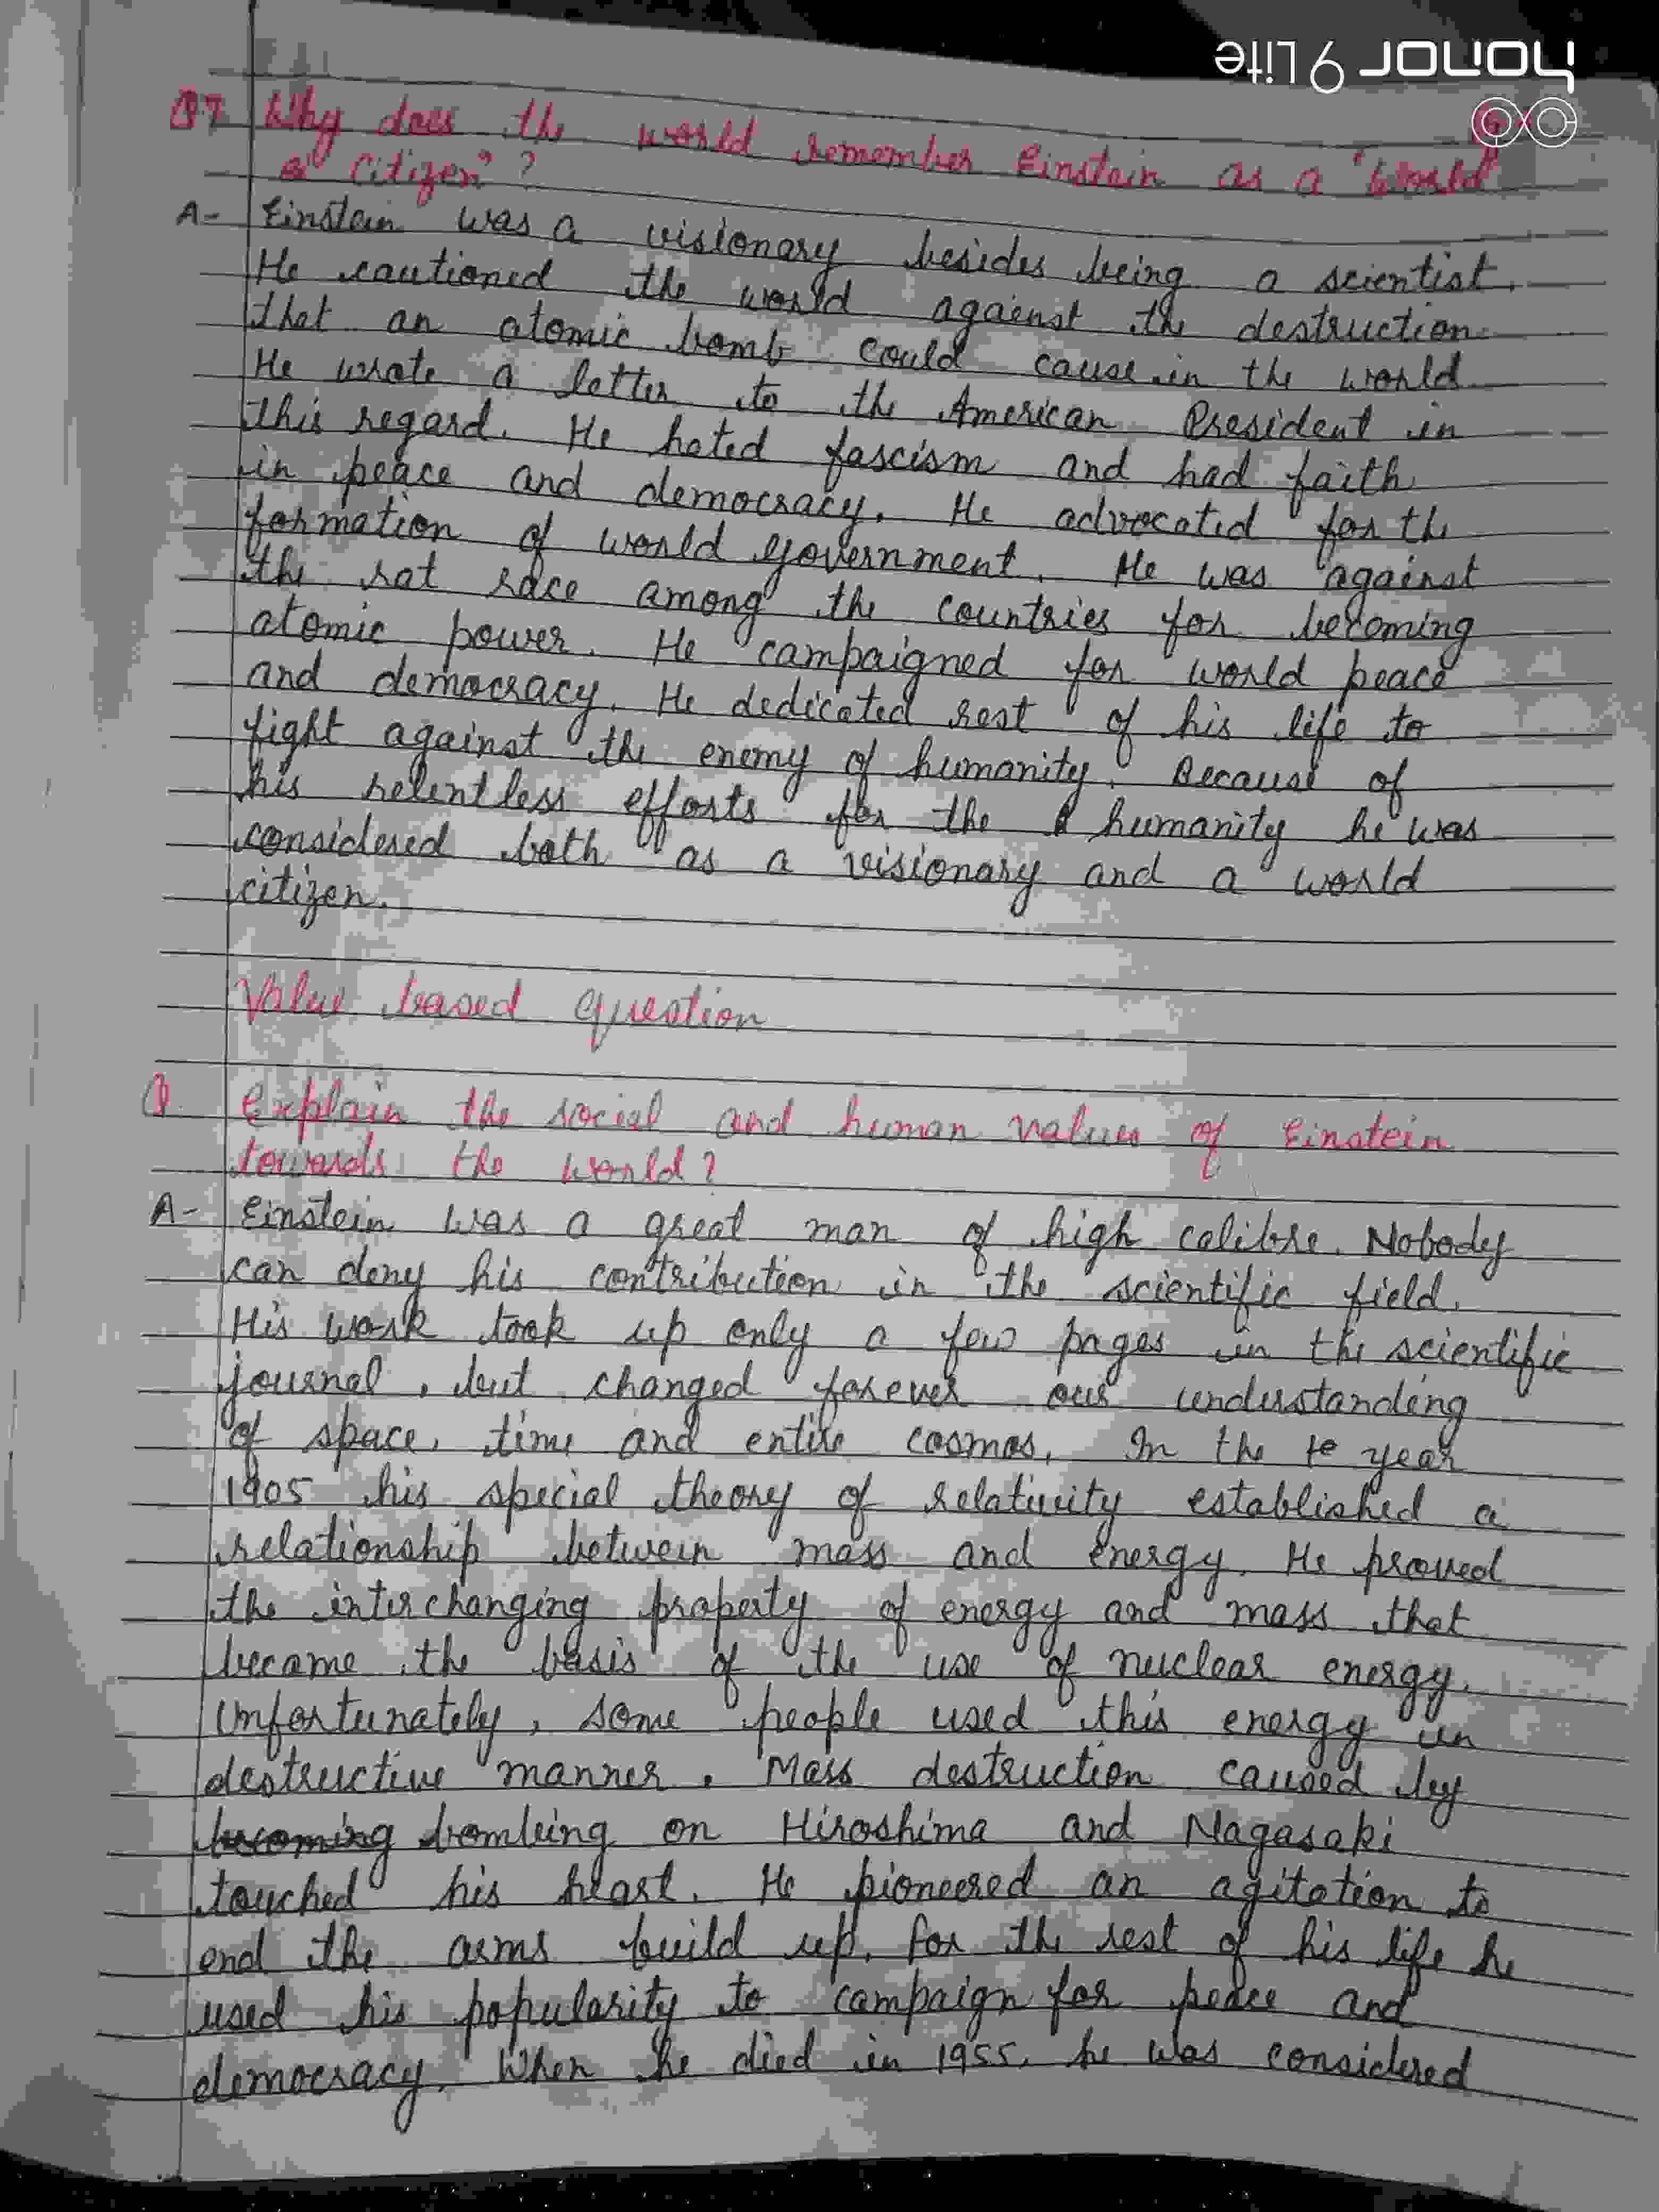 honor 9 Lite
Q7 Why does the world remember Einstein as a "World
Citizen"?
A- Einstein was a visionary besides being a scientist.
He cautioned the world against the destruction
that an atomic bomb could cause in the world
He wrote a letter to the American President in
this regard. He hated fascism and had faith
in peace and democracy. He advocated for the
formation of world government. He was against
the rat race among the countries for becoming
atomic power. He campaigned for world peace
and democracy. He dedicated rest of his life to
fight against the enemy of humanity. Because of
his relentless efforts for the humanity he was
considered both as a visionary and a world
citizen.
Value based question
Q. Explain the social and human values of Einstein
towards the world?
A- Einstein was a great man of high calibre. Nobody
can deny his contribution in the scientific field.
His work took up only a few pages in the scientific
journal, but changed forever our understanding
of space, time and entire cosmos. In the te year
1905 his special theory of relativity established a
relationship between mass and energy. He proved
the interchanging property of energy and mass that
became the basis of the use of nuclear energy.
Unfortunately, some people used this energy in
destructive manner. Mass destruction caused by
becoming bombing on Hiroshima and Nagasaki
touched his heart. He pioneered an agitation to
end the arms build up. For the rest of his life he
used his popularity to campaign for peace and
democracy. When he died in 1955, he was considered